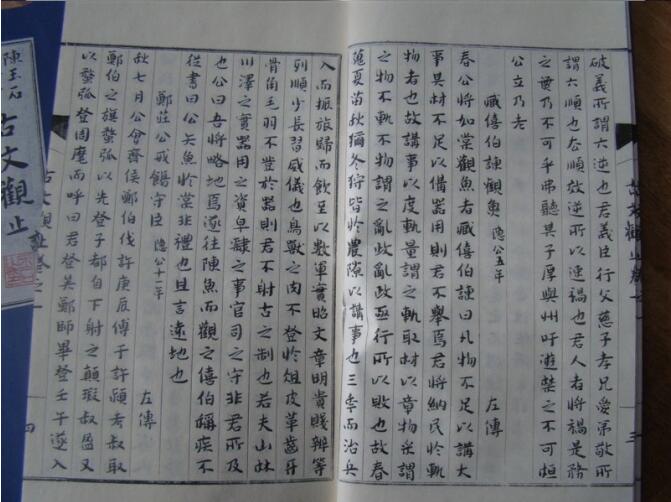 三
破義所謂六逆也君義臣行父慈子孝兄愛弟敬所
謂六順也去順效逆所以速禍也君人者將禍是務
之無乃不可乎弗聽其子厚與州吁遊禁之不可桓
公立乃老
臧僖伯諫觀魚 隱公五年 左傳
春公將如棠觀魚者臧僖伯諫曰凡物不足以講大
事其材不足以備器用則君不舉焉君將納民於軌
物者也故講事以度軌量謂之軌取材以章物采謂
之物不軌不物謂之亂政亂政亟行所以敗也故春
蒐夏苗秋獮冬狩皆於農隙以講事也三年而治兵
入而振旅歸而飲至以數軍實昭文章明貴賤辨等
列順少長習威儀也鳥獸之肉不登於俎皮革齒牙
骨角毛羽不登於器則君不射古之制也若夫山林
川澤之實器用之資皁隸之事官司之守非君所及
也公曰吾將略地焉遂往陳魚而觀之僖伯稱疾不
從書曰公矢魚於棠非禮也且言遠地也
鄭莊公戒飭守臣 隱公十一年 左傳
秋七月公會齊侯鄭伯伐許庚辰傅于許潁考叔取
鄭伯之旗蝥弧以先登子都自下射之顛瑕叔盈又
以蝥弧登周麾而呼曰君登矣鄭師畢登壬午遂入
古文觀止卷之一 四
古文觀止